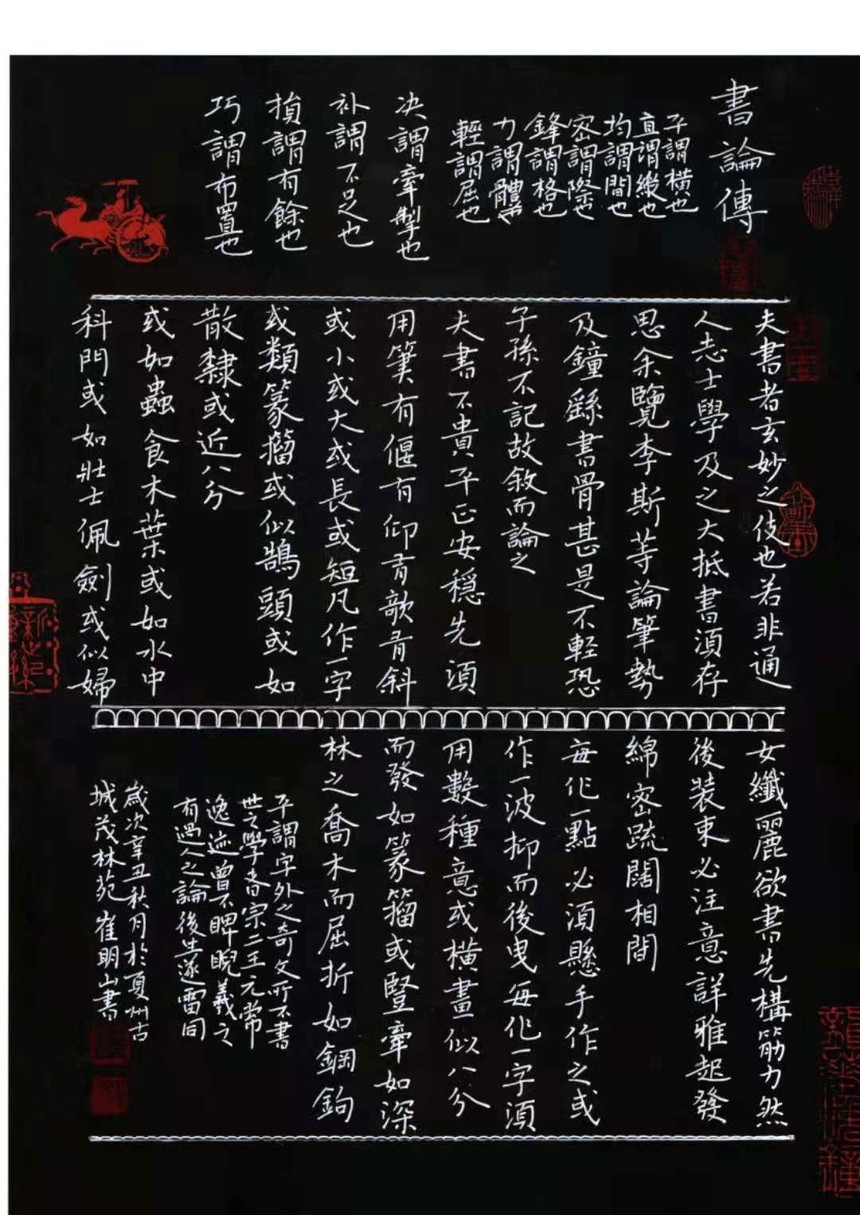 書論傳
平謂橫也
直謂縱也
均謂間也
密謂際也
鋒謂格也
力謂體也
輕謂屈也
决謂牽掣也
补謂不足也
損謂有餘也
巧謂布置也
夫書者玄妙之伎也若非通
人志士學及之大抵書須存
思余覽李斯等論筆勢
及鐘繇書骨甚是不輕恐
子孫不記故敘而論之
夫書不貴平正安穩先須
用筆有偃有仰有欹有斜
或小或大或長或短凡作一字
或類篆籀或似鵠頭或如
散隸或近八分
或如蟲食木葉或如水中
科鬥或如壯士佩劍或似婦
女纖麗欲書先構筋力然
後裝束必注意詳雅起發
綿密疏闊相間
每作一點必須懸手作之或
作一波抑而後曳每作一字須
用數種意或橫畫似八分
而發如篆籀或竪牽如深
林之喬木而屈折如鋼鉤
平謂字外之奇文所不書
世之學者宗二王元常
逸迹曾不睥睨羲之
有過人之論後生遂雷同
歲次辛丑秋月於夏州古
城茂林苑崔明山書